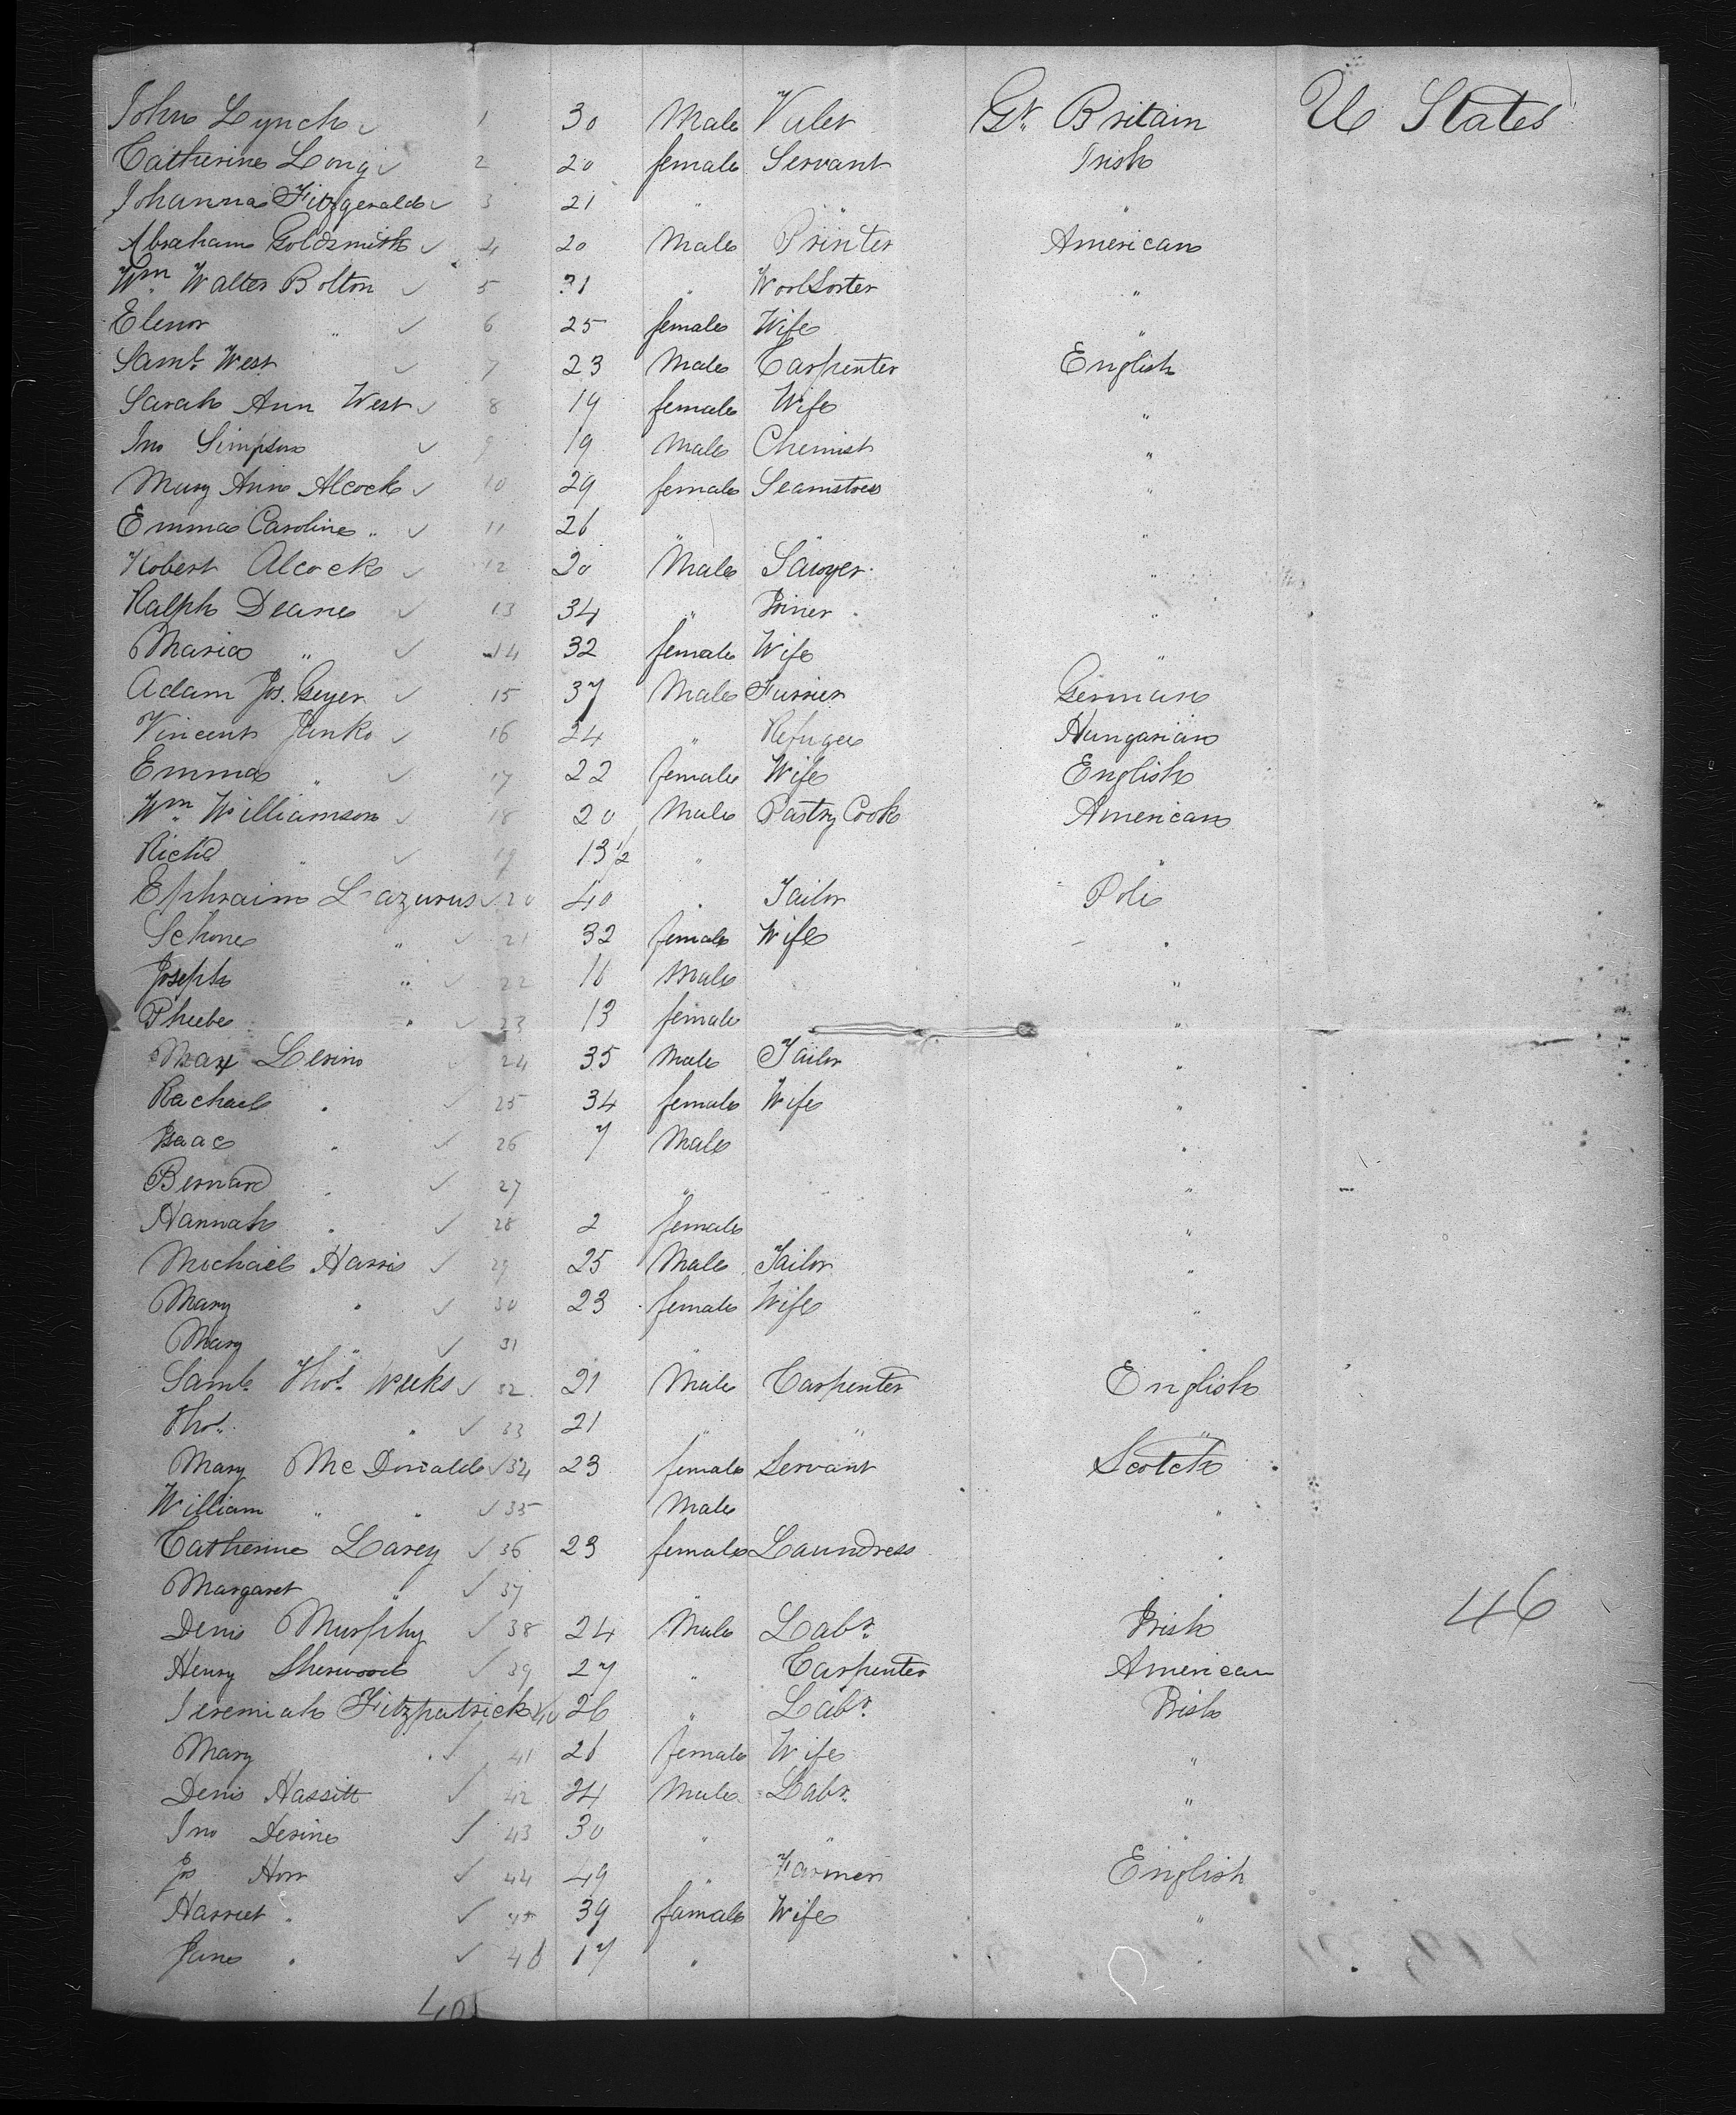 John Lynch ✓ 1 30 Male Valet Gt. Britain U States
Catherine Long ✓ 2 20 female Servant Irish
Johanna Fitzgerald ✓ 3 21 " " "
Abraham Goldsmith ✓ 4 20 Male Printer American
Wm. Walter Bolton ✓ 5 31 " Wool Sorter "
Elenor " ✓ 6 25 female Wife "
Saml. West ✓ 7 23 Male Carpenter English
Sarah Ann West ✓ 8 19 female Wife "
Jno Simpson ✓ 9 19 Male Chemist "
Mary Ann Alcock ✓ 10 29 female Seamstress "
Emma Caroline " ✓ 11 26 " " "
Robert Alcock ✓ 12 20 Male Sawyer "
Ralph Deane ✓ 13 34 " Joiner "
Maria " ✓ 14 32 female Wife "
Adam Jos. Geyer ✓ 15 37 Male Furrier German
Vincent Junko ✓ 16 24 " Refugee Hungarian
Emma " ✓ 17 22 female Wife English
Wm. Williamson ✓ 18 20 Male Pastry Cook American
Richd " ✓ 19 13 1/2 " "
Ephraim Lazurus ✓ 20 40 " Tailor Pole
Schone " ✓ 21 32 female Wife "
Joseph " ✓ 22 16 Male "
Phebe " ✓ 23 13 female "
Max Levin ✓ 24 35 Male Tailor "
Rachael " ✓ 25 34 female Wife "
Isaac " ✓ 26 7 Male "
Bernard " ✓ 27 " "
Hannah " ✓ 28 2 female "
Michael Harris ✓ 29 25 Male Tailor "
Mary " ✓ 30 23 female Wife "
Mary " ✓ 31 "
Saml. Thos. Weeks ✓ 32 21 Male Carpenter English
Thos. " ✓ 33 21 " " "
Mary McDonald ✓ 34 23 female Servant Scotch
William " " ✓ 35 Male "
Catherine Carey ✓ 36 23 female Laundress "
Margaret " ✓ 37 "
46
Denis Murphy ✓ 38 24 Male Labr. Irish
Henry Sherwood ✓ 39 27 " Carpenter American
Jeremiah Fitzpatrick ✓ 40 26 " Labr. Irish
Mary " ✓ 41 26 female Wife "
Denis Hassitt ✓ 42 24 Male Labr. "
Jno Devine ✓ 43 30 " " "
Jos Horr ✓ 44 49 " Farmer English
Harriet " ✓ 45 39 famale Wife "
Jane " ✓ 46 17 " "